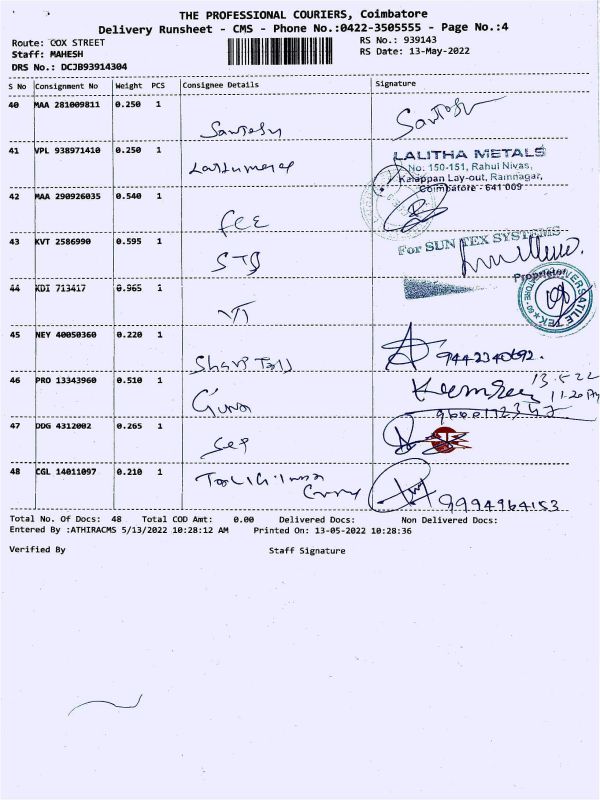 THE PROFESSIONAL COURIERS, Coimbatore
Delivery Runsheet - CMS - Phone No.:0422-3505555 - Page No.:4
Route: COX STREET
RS No.: 939143
Staff: MAHESH
RS Date: 13-May-2022
DRS No.: DCJB93914304
S No Consignment No Weight PCS Consignee Details Signature
40 MAA 281009811 0.250 1
Santosh Santosh
41 VPL 938971410 0.250 1
LALITHA METALS
No: 150-151, Rahul Nivas,
Kalappan Lay-out, Ramnagar,
Coimbatore - 641 009
42 MAA 290926035 0.540 1
FCE
43 KVT 2586990 0.595 1
For SUN TEX SYSTEMS
STS
Proprietor
44 KDI 713417 0.965 1
VERSATILE TEK
VI
45 NEY 40050360 0.220 1
9442340692.
46 PRO 13343960 0.510 1
13.5.22
11.20
Guna
47 DDG 4312002 0.265 1
Sep
48 CGL 14011097 0.210 1
9994964153
Total No. Of Docs: 48 Total COD Amt: 0.00 Delivered Docs: Non Delivered Docs:
Entered By :ATHIRACMS 5/13/2022 10:28:12 AM Printed On: 13-05-2022 10:28:36
Verified By Staff Signature